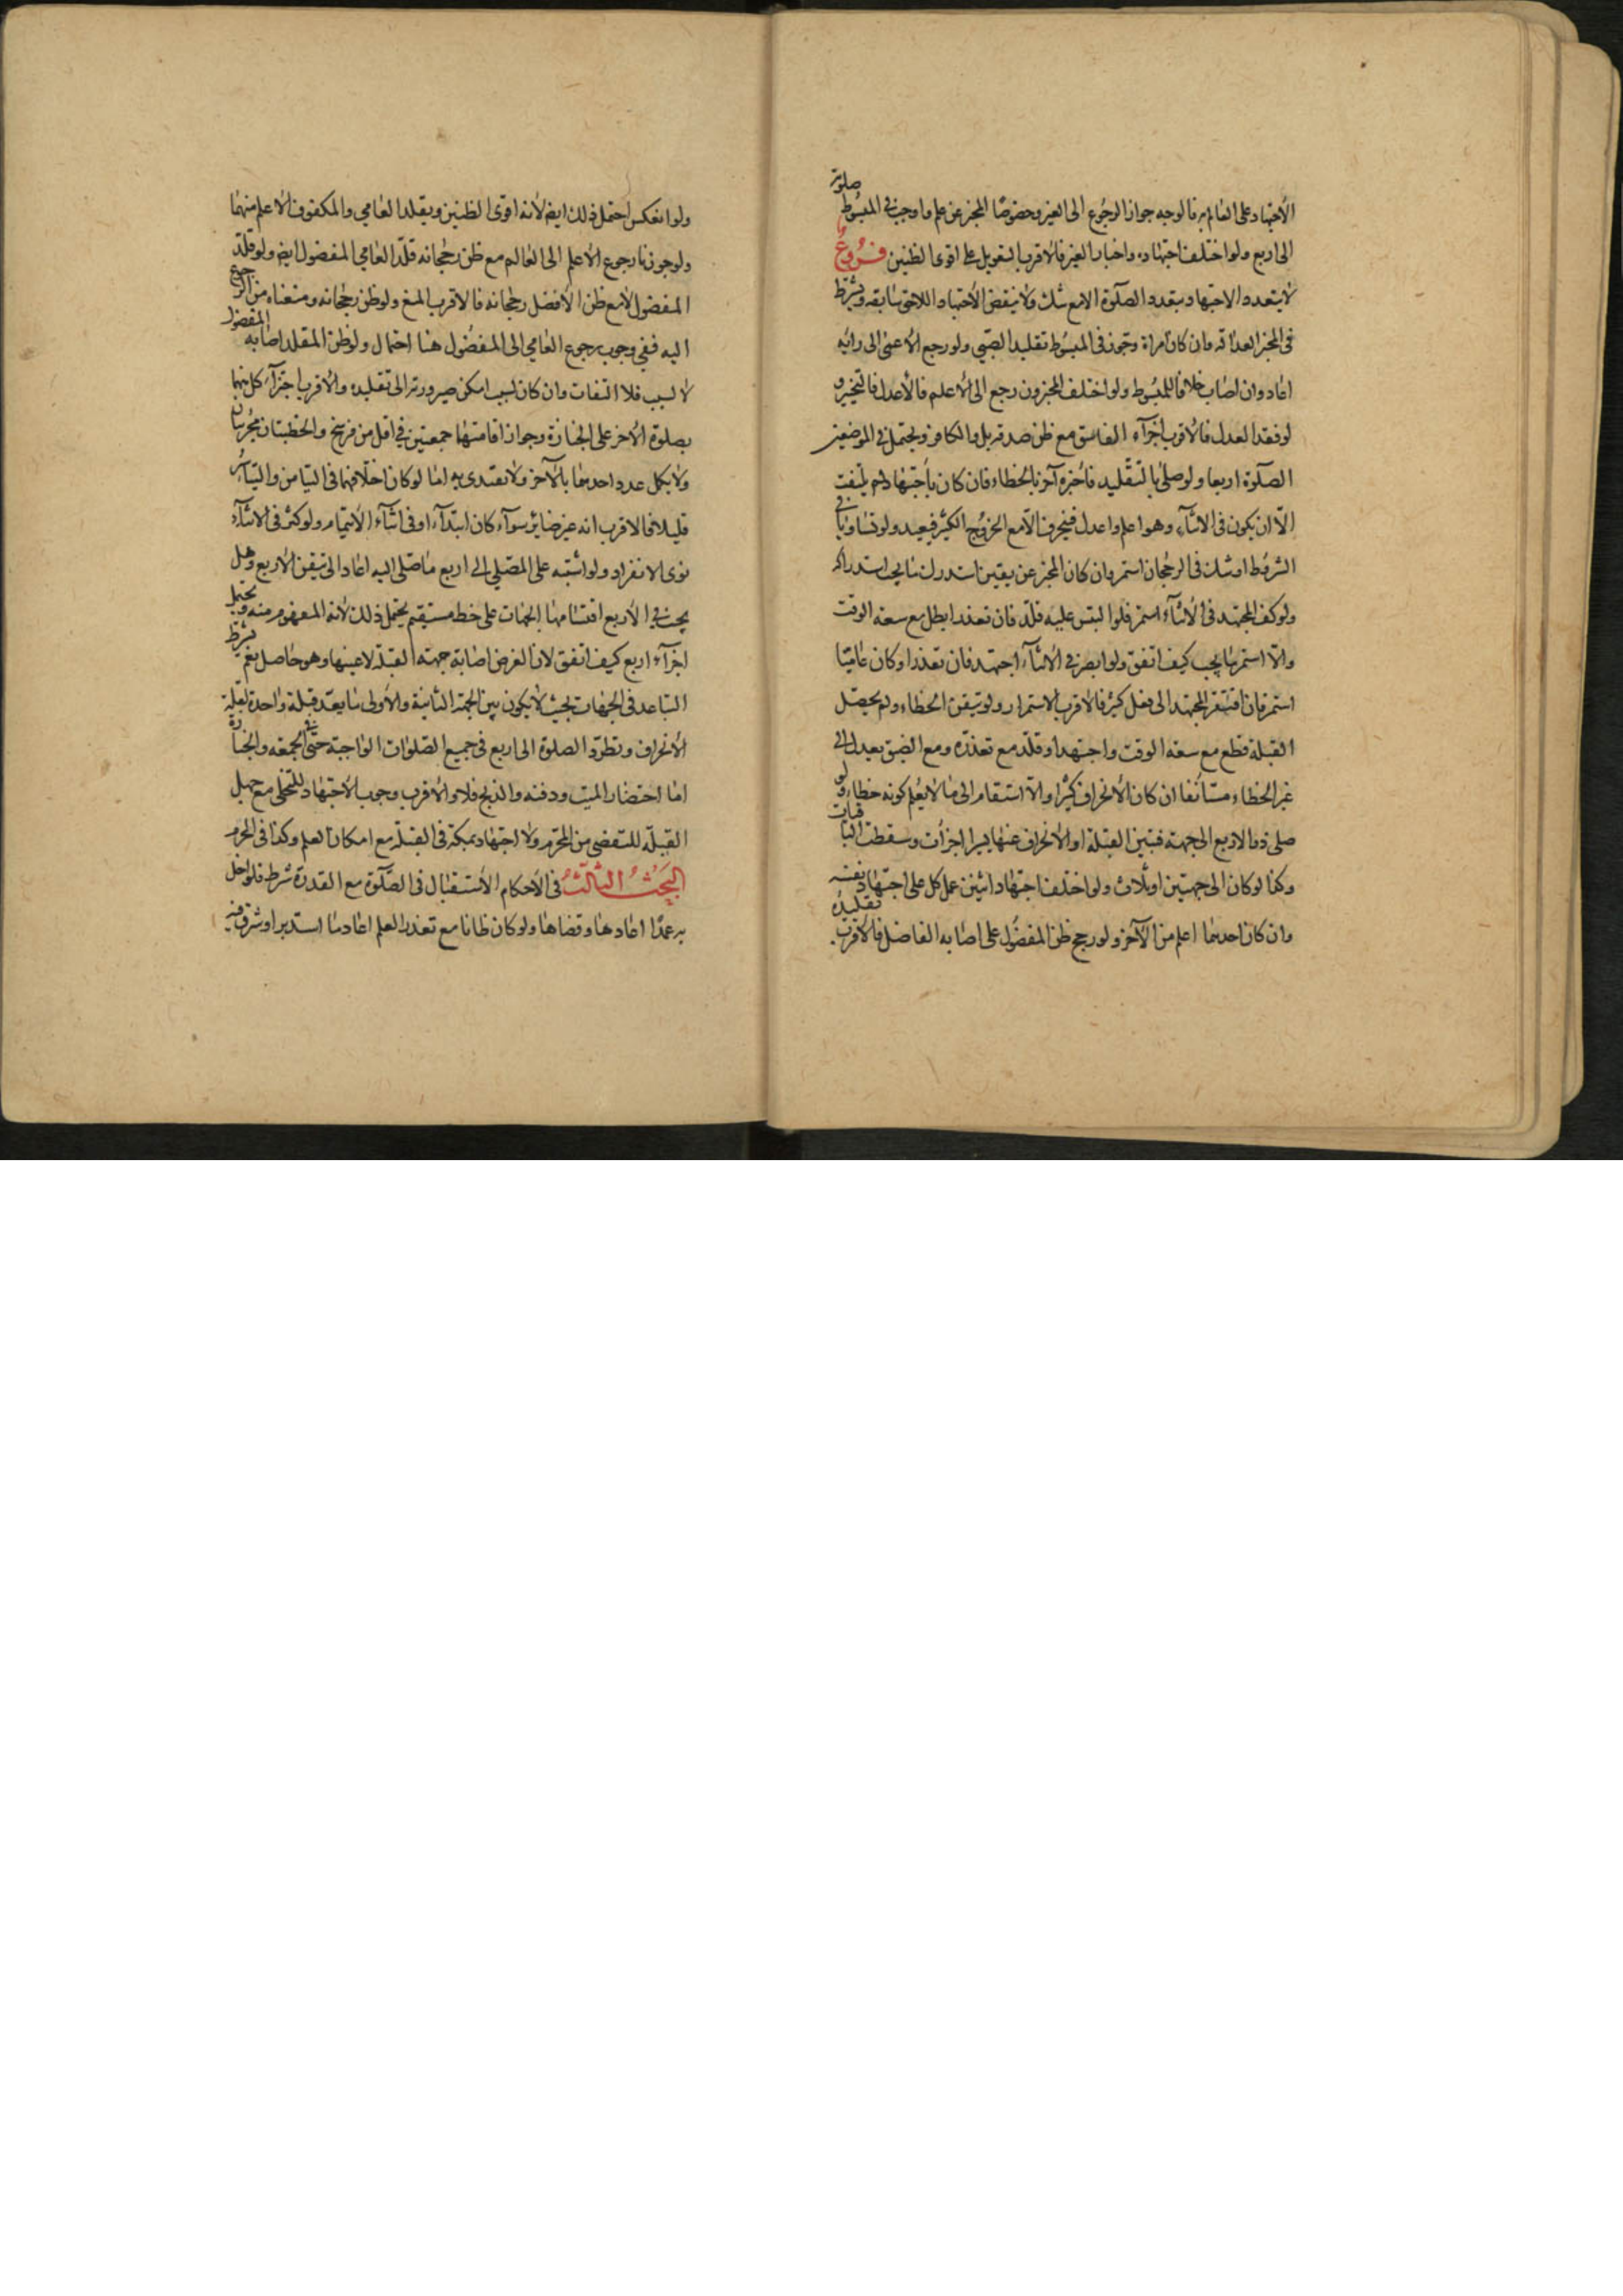 الاجتهاد على العالم به فالوجه جواز الرجوع الى الغير وخصوصا المخبر عن علم وما وجب في المبسوط صلوته
الى اربع ولو اختلف اجتهاده واخبار الغير فالاقرب التعويل على اقوى الظنين فروع
لا يتعدد الاجتهاد بتعدد الصلوة الا مع شك ولا ينقض الاجتهاد اللاحق سابقه ويشترط
في المخبر العدالة وان كان امراة وجوز في المبسوط تقليد الصبي ولو رجع الاعمى الى رأيه
اعاد وان اصاب خلافا للمبسوط ولو اختلف المخبرون رجع الى الاعلم فالاعدل فالتخير و
لو فقد العدل فالاقرب اجزآء الفاسق مع ظن صدقه بل والكافر ويحتمل في الموضعين
الصلوة اربعا ولو صلى بالتقليد فأخبره آخر بالخطاء فان كان باجتهاد لم يلتفت
الا ان يكون في الاثنآء وهو اعلم واعدل فينحرف الا مع الخروج الكثير فيعيد ولو تساويا في
الشروط او شك في الرجحان استمر وان كان المخبر عن يقين استدرك ما يجب استدراكه
ولو كف المجتهد في الاثنآء استمر فلو التبس عليه قلد فان تعذر ابطل مع سعة الوقت
والا استمر بما يجب كيف اتفق ولو ابصر في الاثنآء اجتهد فان تعذر او كان عاميا
استمر فان افتقر المجتهد الى فعل كثير فالاقرب الاستمرار ولو تيقن الخطاء ولم يحصل
القبلة قطع مع سعة الوقت واجتهد او قلد مع تعذره ومع الضيق يعدل الى
غير الخطاء مستأنفا ان كان الانحراف كثيرا والا استقام الى ما لا يعلم كونه خطاء ولو
صلى ذو الاربع الى جهة فتبين القبلة او الانحراف عنها يسيرا اجزأت وسقطت الباقيات
وكذا لو كان الى جهتين او ثلاث ولو اختلف اجتهاد اثنين عمل كل على اجتهاد نفسه
وان كان احدهما اعلم من الآخر ولو رجح ظن المفضول على اصابه الفاضل فالاقرب تقليده
ولو انعكس احتمل ذلك ايض لانه اقوى الظنين ويقلد العامي والمكفوف الاعلم منهما
ولو جوزنا رجوع الاعلم الى العالم مع ظن رجحانه قلد العامي المفضول ايض ولو قلد
المفضول لا مع ظن الافضل رجحانه فالاقرب المنع ولو ظن رجحانه ومنعناه من الرجوع
اليه ففي وجوب رجوع العامي الى المفضول هنا احتمال ولو ظن المقلد اصابه المفضول
لا لسبب فلا التفات وان كان لسبب امكن صيرورته الى تقليده والاقرب اجتزآء كل منهما
بصلوة الاخر على الجنازة وجواز اقامتهما جمعتين في اقل من فرسخ والخطبتان مجزيتان
ولا يكمل عدد احديهما بالآخر ولا يقتدى به اما لو كان اختلافهما في التيامن والتياسر
قليلا فالاقرب انه غير ضاير سوآء كان ابتدآء او في اثنآء الايتمام ولو كثر في الاثنآء
نوى الانفراد ولو اشتبه على المصلي الى اربع ما صلى اليه اعاد الى تيقن الاربع وهل
يجب في الاربع اقتسامها الجهات على خط مستقيم يحتمل ذلك لانه المفهوم منه ويحتمل
اجزآء اربع كيف اتفق لان الغرض اصابة جهة القبلة لا عينها وهو حاصل نعم يشترط
التباعد في الجهات بحيث لا يكون بين الجهة الثانية والاولى ما يعد قبلة واحدة لقلة
الانحراف وتطرد الصلوة الى اربع في جميع الصلوات الواجبة حتى في الجمعة والجنازة
اما احتضار الميت ودفنه والذبح فلا والاقرب وجوب الاجتهاد للتخلي مع جهل
القبلة للتفصي من المحرم ولا اجتهاد بمكة في القبلة مع امكان العلم وكذا في الحرم
البحث الثالث في الاحكام الاستقبال في الصلوة مع القدرة شرط فلو اخل
به عمدا اعادها وقضاها ولو كان ظانا مع تعذر العلم اعاد ما استدبر او شرق فيه